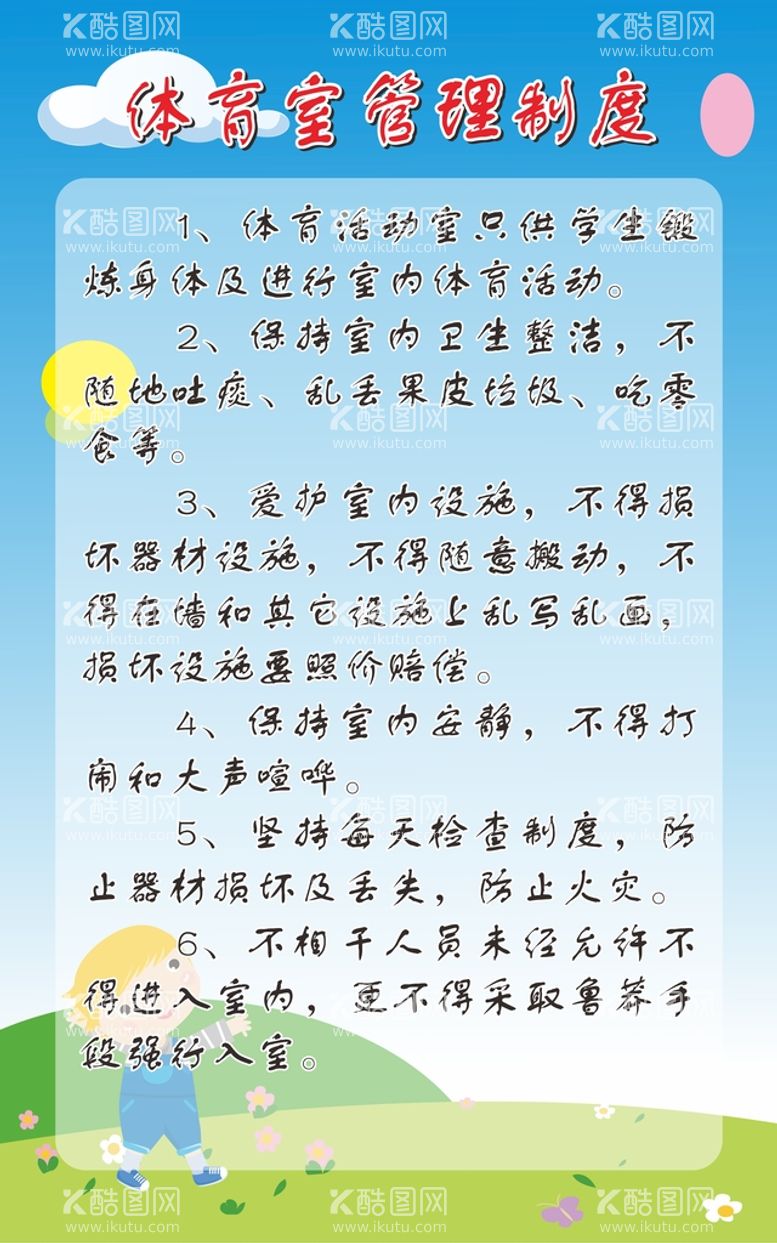 体育室管理制度
1、体育活动室只供学生锻
炼身体及进行室内体育活动。
2、保持室内卫生整洁，不
随地吐痰、乱丢果皮垃圾、吃零
食等。
3、爱护室内设施，不得损
坏器材设施，不得随意搬动，不
得在墙和其它设施上乱写乱画，
损坏设施要照价赔偿。
4、保持室内安静，不得打
闹和大声喧哗。
5、坚持每天检查制度，防
止器材损坏及丢失，防止火灾。
6、不相干人员未经允许不
得进入室内，更不得采取鲁莽手
段强行入室。
酷图网
www.ikutu.com